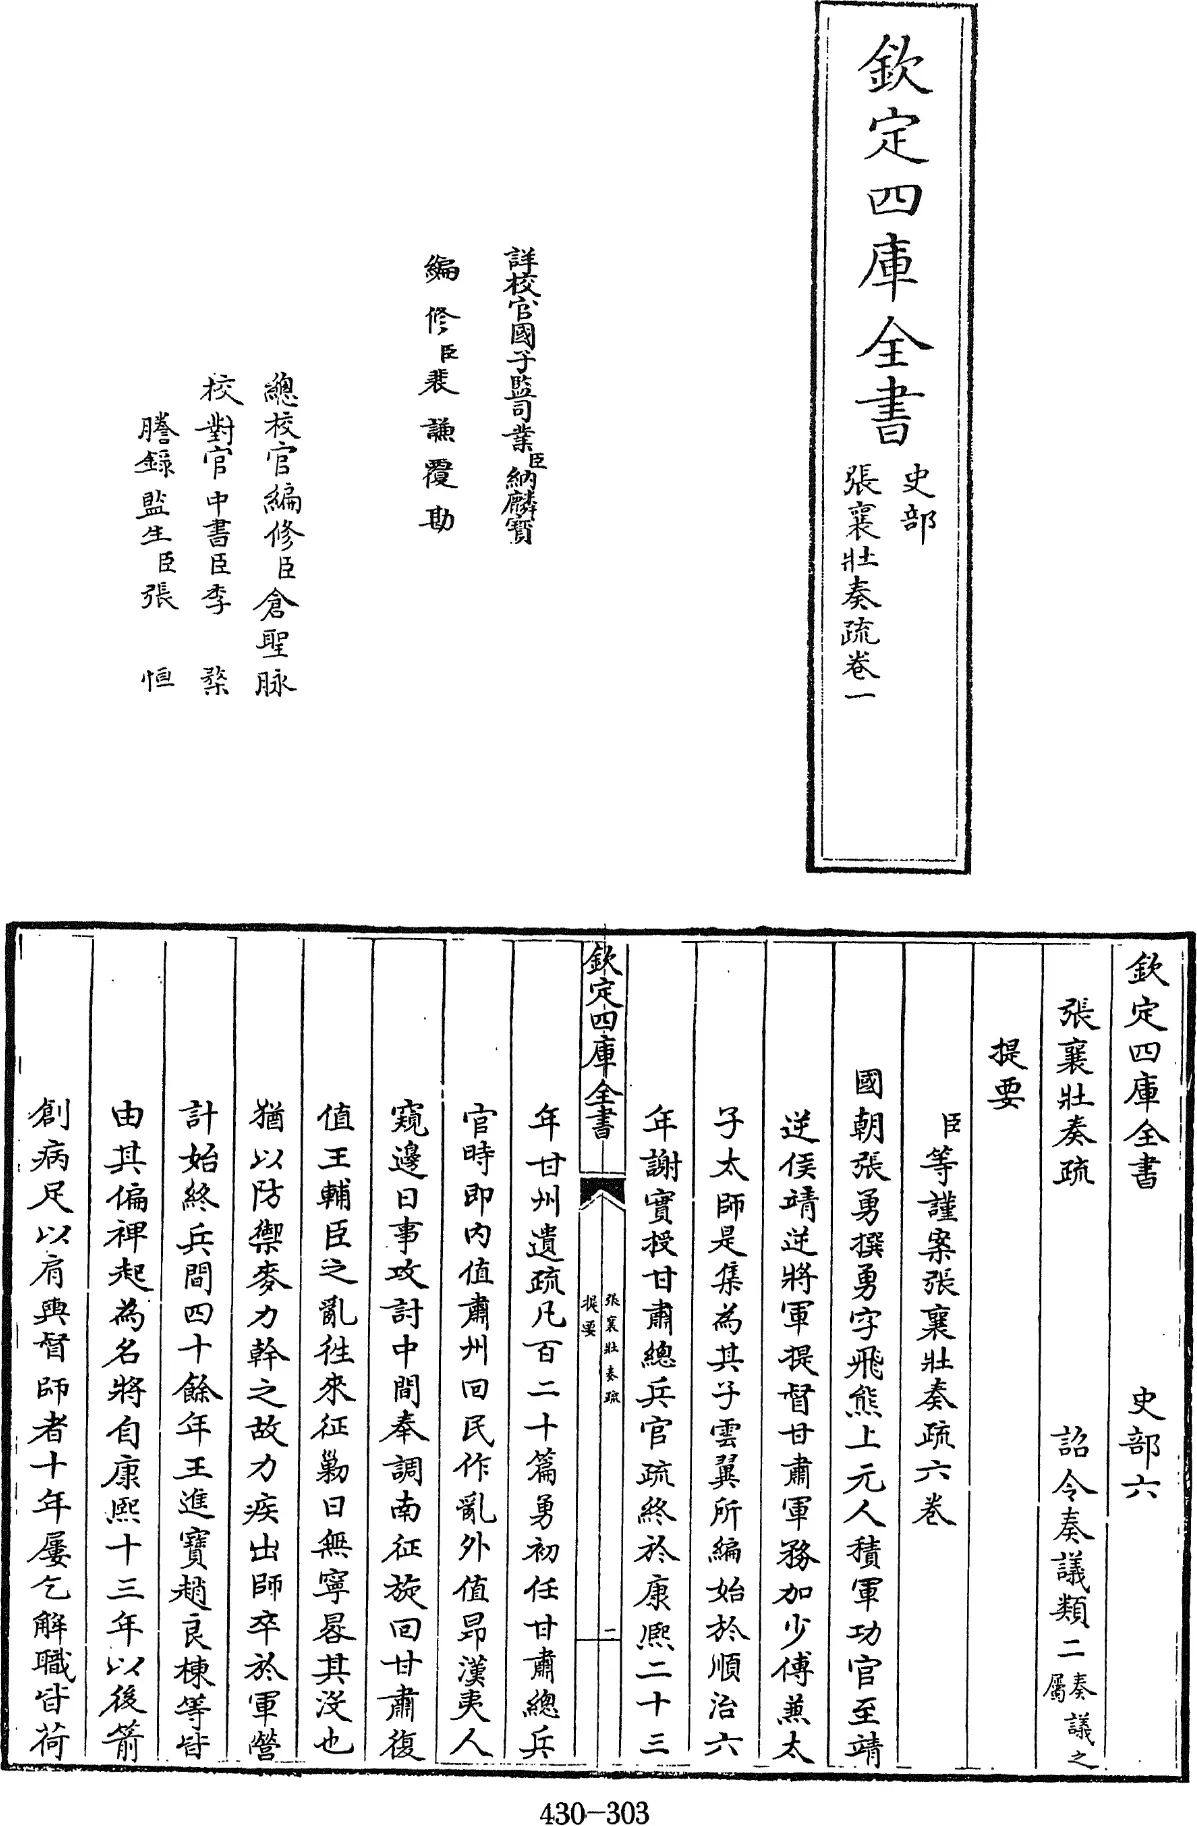 欽定四庫全書
史部
張襄壯奏疏卷一
詳校官國子監司業臣納麟寶
編修臣裴謙覆勘
總校官編修臣倉聖脉
校對官中書臣李楘
謄錄監生臣張恒
欽定四庫全書 史部六
張襄壯奏疏 詔令奏議類二奏議之屬
提要
臣等謹案張襄壯奏疏六卷
國朝張勇撰勇字飛熊上元人積軍功官至靖
逆侯靖逆將軍提督甘肅軍務加少傅兼太
子太師是集為其子雲翼所編始於順治六
年謝實授甘肅總兵官疏終於康熙二十三
欽定四庫全書
張襄壯奏疏
提要
二
年甘州遺疏凡百二十篇勇初任甘肅總兵
官時即內值肅州回民作亂外值昂漢夷人
窺邊日事攻討中間奉調南征旋回甘肅復
值王輔臣之亂徃來征勦日無寧晷其沒也
猶以防禦麥力幹之故力疾出師卒於軍營
計始終兵間四十餘年王進寶趙良棟等皆
由其偏裨起為名將自康熙十三年以後箭
創病足以肩輿督師者十年屢乞解職皆荷
430-303